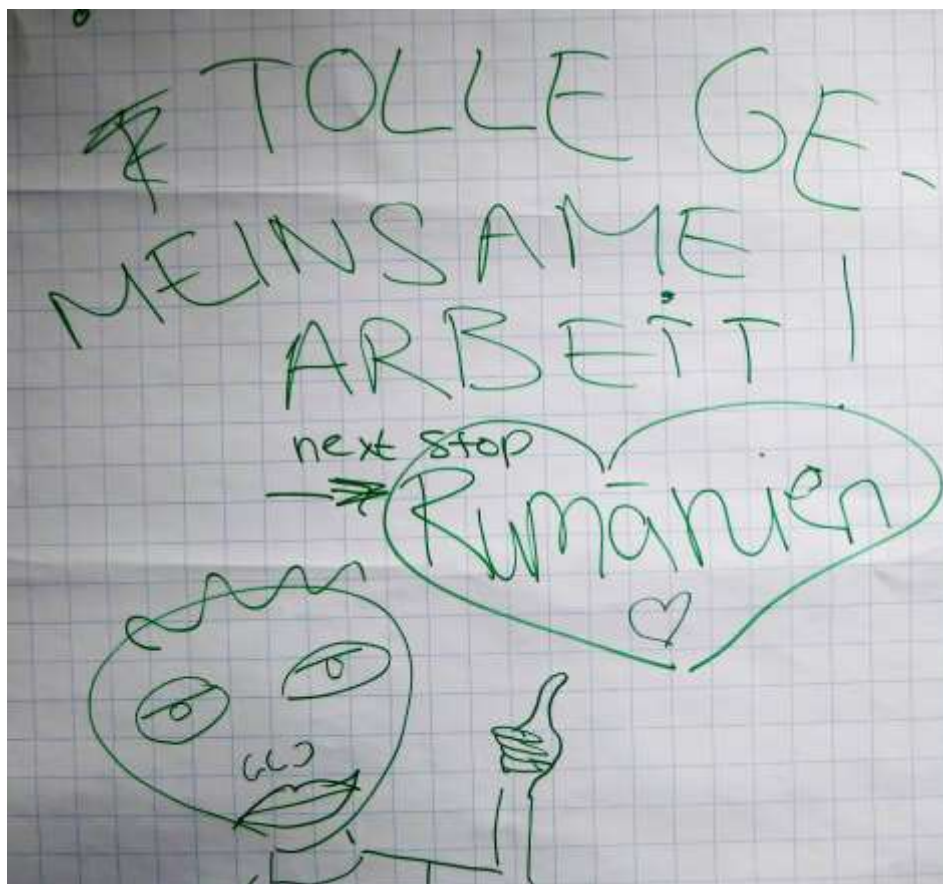 TOLLE GE-
MEINSAME
ARBEIT!
next stop
Rumänien